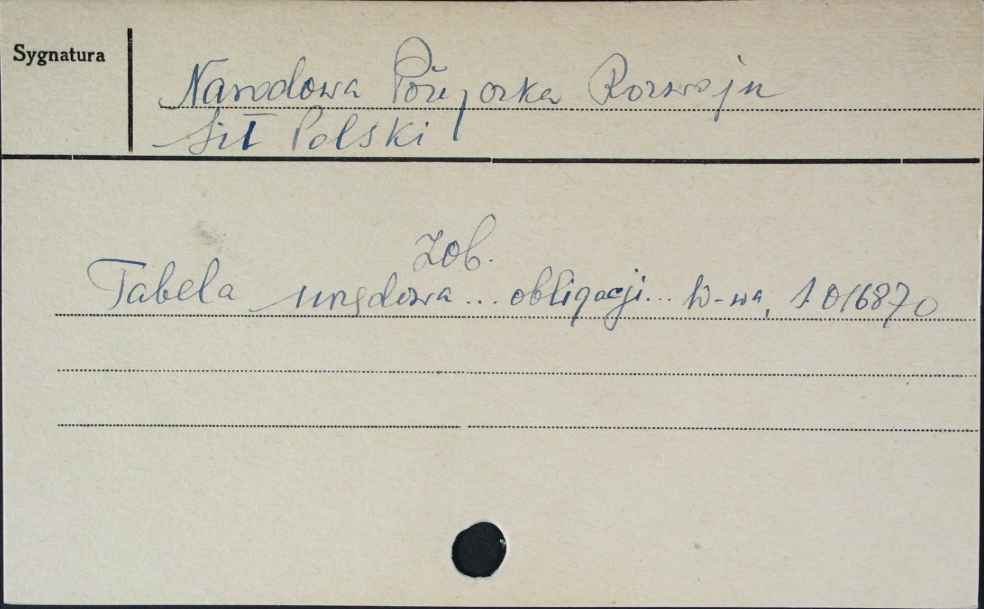 Sygnatura
Narodowa Pożyczka Rozwoju
Sił Polski
Zob.
Tabela urzędowa... obligacji... W-wa, 1. 016870